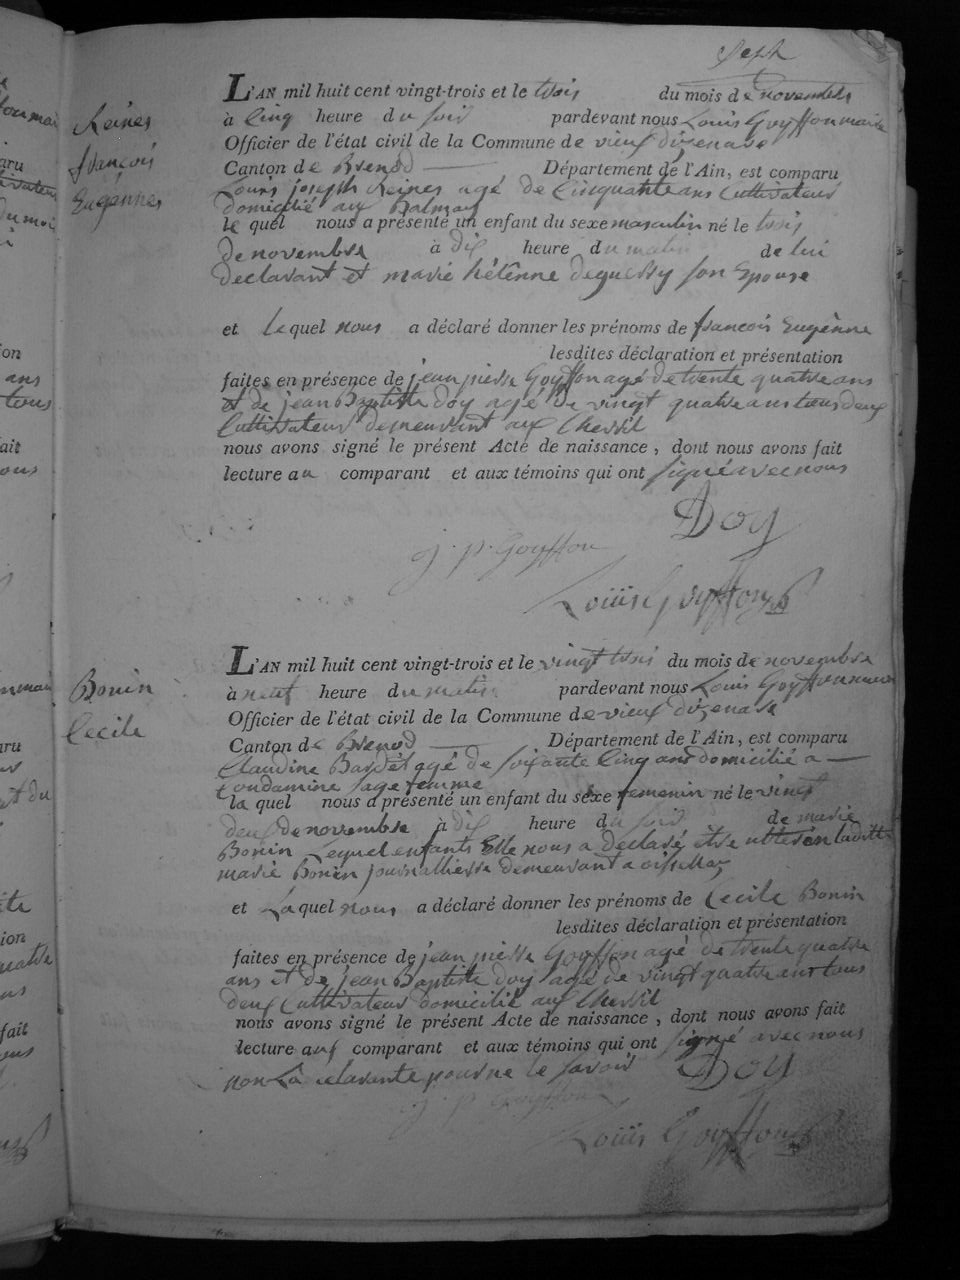 Sept
L'AN mil huit cent vingt-trois et le trois du mois de novembre
Reines
à Cinq heure du soir pardevant nous Louis Goyffon maire
Officier de l'état civil de la Commune de vieux dizenave
françois
Canton de Brenod Département de l'Ain, est comparu
Eugennes
Louis joseph Reines agé de Cinquante ans Cultivateur
domicilié aux Balmay
le quel nous a présenté un enfant du sexe masculin né le trois
de novembre à dix heure du matin de lui
declarant et marie hélênne deguerry son Epouse
et le quel nous a déclaré donner les prénoms de françois Eugênne
lesdites déclaration et présentation
faites en présence de jean pierre Goyffon agé de trente quatre ans
et de jean Baptiste doy agé de vingt quatre ans tous deux
Cultivateur demeurant aux Chevril
nous avons signé le présent Acte de naissance, dont nous avons fait
lecture au comparant et aux témoins qui ont signé avec nous
Doy
j. p. Goyffon
Louiis Goyffon
L'AN mil huit cent vingt-trois et le vingt trois du mois de novembre
Bonin
à neuf heure du matin pardevant nous Louis Goyffon maire
Officier de l'état civil de la Commune de vieux dizenave
Cecile
Canton de Brenod Département de l'Ain, est comparu
Claudine Bardet agé de soixante Cinq ans domicilié a
Condamine sage femme
la quel nous a présenté un enfant du sexe femenin né le vingt
deux de novembre à dix heure du soir de marie
Bonin Lequel enfants Elle nous a declaré être
marie Bonin journalliesse demeurant a oissellaz
et La quel nous a déclaré donner les prénoms de Cecile Bonin
lesdites déclaration et présentation
faites en présence de jean pierre Goyffon agé de trente quatre
ans et de jean Baptiste doy agé de vingt quatre ans tous
deux Cultivateur domicilié aux Chevril
nous avons signé le présent Acte de naissance, dont nous avons fait
lecture aux comparant et aux témoins qui ont signé avec nous
non La declarante pour ne le savoir
Doy
j. p. Goyffon
Louiis Goyffon